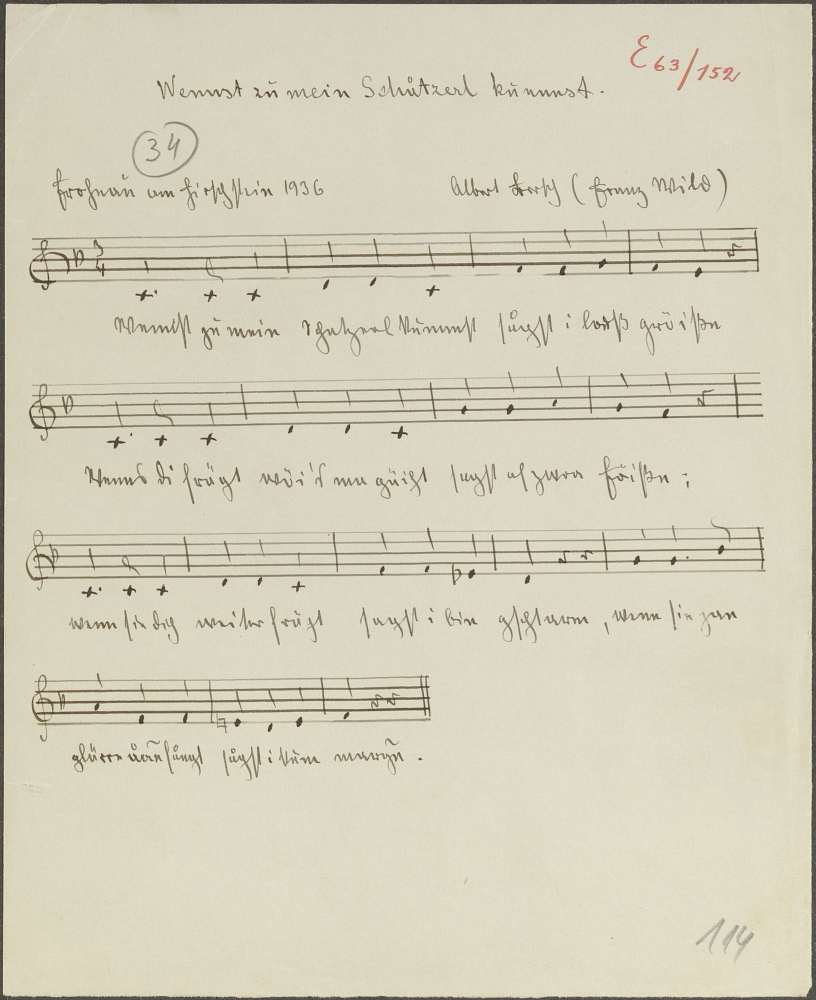 E 63/152
Wennst zu mein Schåtzerl kummst.
34
Frohnau am Hirschstein 1936 Albert Brosch (Franz Wild)
3
4
Wennst zu mein Schatzerl kummst sågst i loß gröißn
Wenns di frägt wöi's ma gäiht sagst af zwoa Föißn;
wenn sie dich weiter frägt sagst i bin gschtarm, wenn sie zan
fångt sågst i kum margn.
114